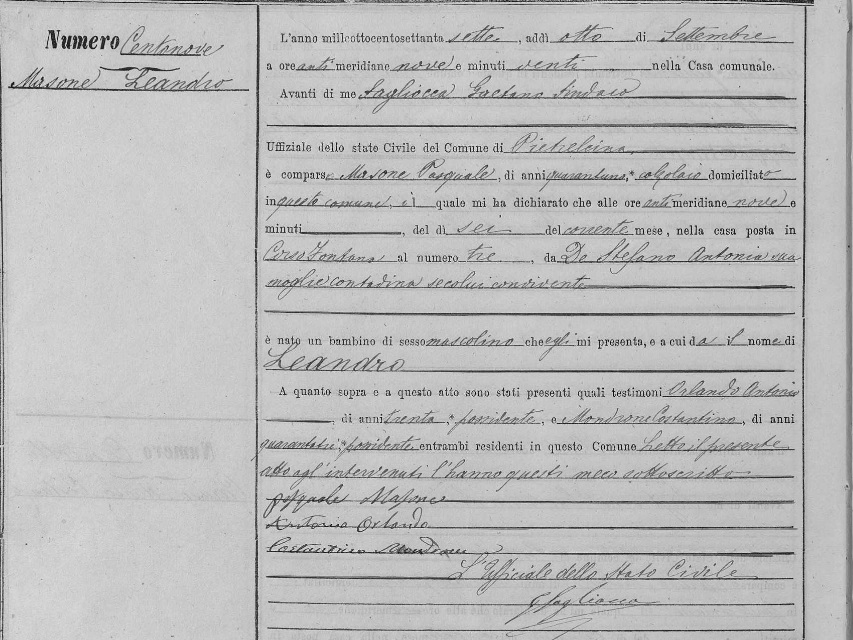 Numero Centonove
Masone Leandro
L'anno millottocentosettanta sette, addì otto di Settembre
a ore anti meridiane nove e minuti venti nella Casa comunale.
Avanti di me Sagliocca Gaetano Sindaco
Uffiziale dello stato Civile del Comune di Pietrelcina
è comparso Masone Pasquale, di anni quarantuno, calzolaio domiciliato
in questo comune, il quale mi ha dichiarato che alle ore anti meridiane nove e
minuti, del dì sei del corrente mese, nella casa posta in
Corso Fontana al numero tre, da De Stefano Antonia sua
moglie contadina secolui convivente
è nato un bambino di sesso mascolino che egli mi presenta, e a cui dà il nome di
Leandro
A quanto sopra e a questo atto sono stati presenti quali testimoni Orlando Antonio
, di anni trenta, possidente, e Mondrone Costantino, di anni
quarantatrè, possidente entrambi residenti in questo Comune Letto il presente
atto agl'intervenuti l'hanno questi meco sottoscritto
Pasquale Masone
Antonio Orlando
Costantino Mondrone
L'Uffiziale dello Stato Civile
GSagliocca
Numero